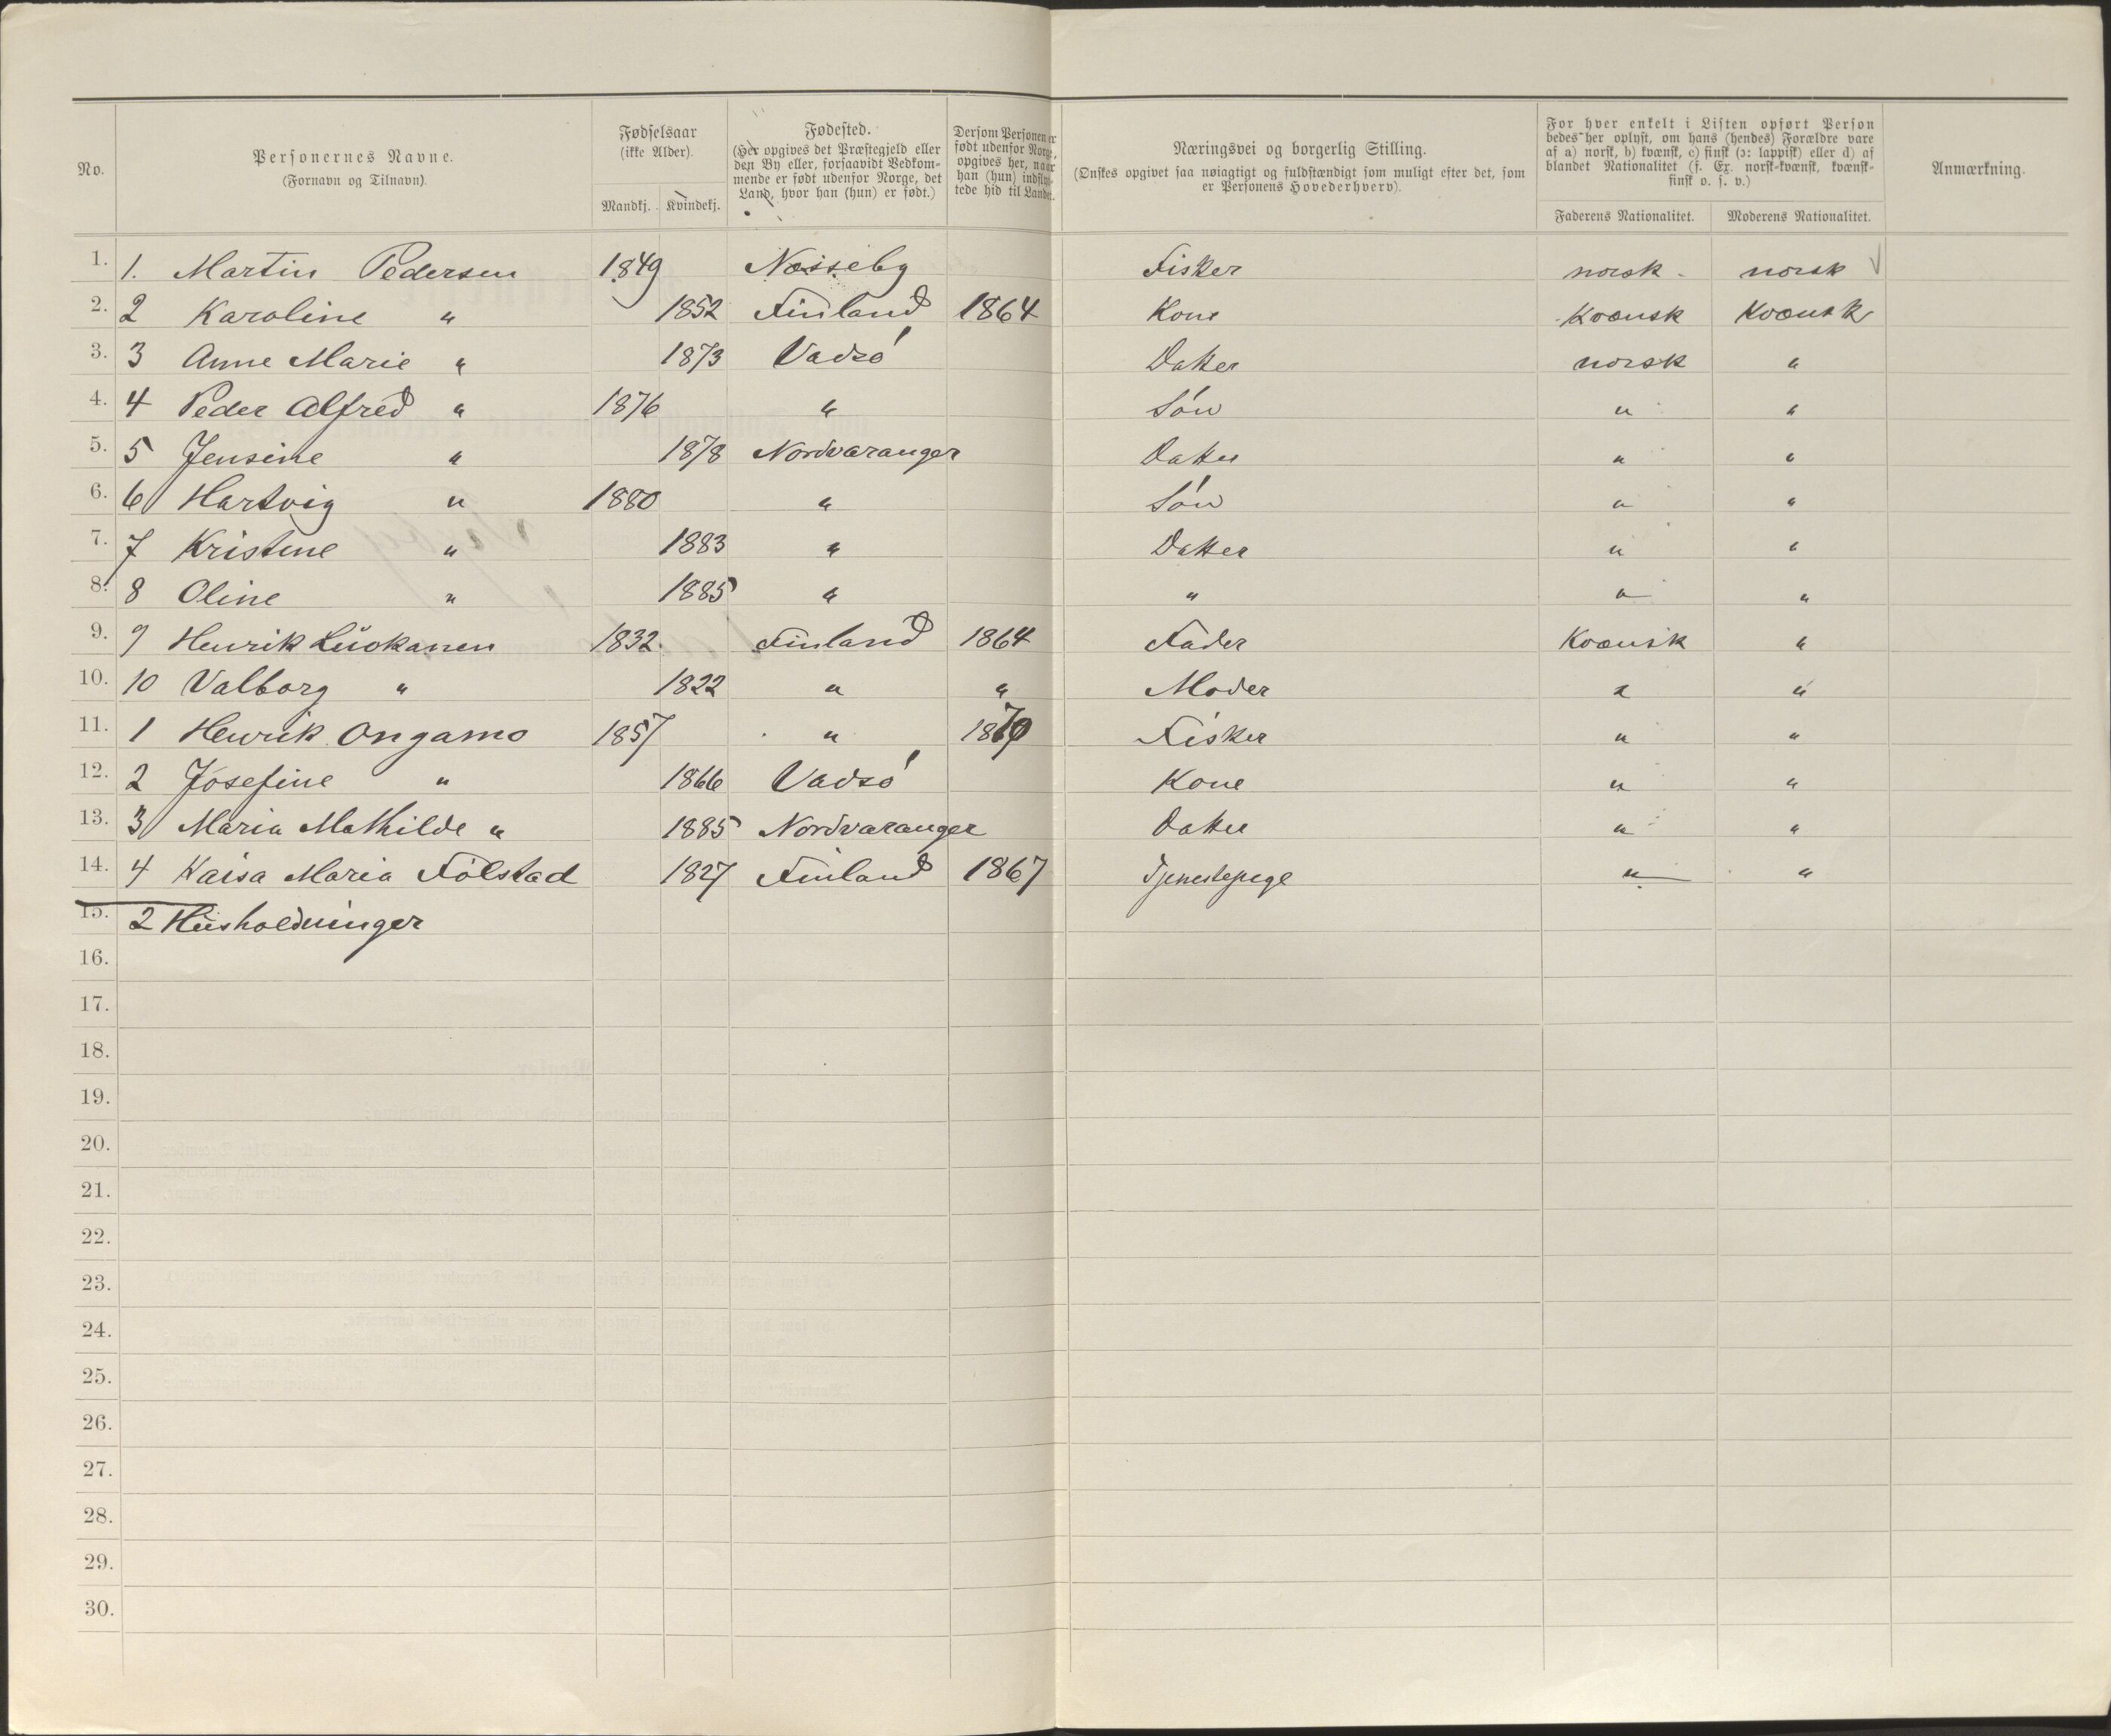 No.
Personernes Navne.
(Fornavn og Tilnavn).
Fødselsaar
(ikke Alder).
Mandkj.
Kvindekj.
Fødested.
(Her opgives det Præstegjeld eller
den By eller, forsaavidt Vedkom-
mende er født udenfor Norge, det
Land, hvor han (hun) er født.)
Dersom Personen er
født udenfor Norge,
opgives her, naar
han (hun) indflyt-
tede hid til Landet.
Næringsvei og borgerlig Stilling.
(Ønskes opgivet saa nøiagtigt og fuldstændigt som muligt efter det, som
er Personens Hovederhverv).
For hver enkelt i Listen opført Person
bedes her oplyst, om hans (hendes) Forældre vare
af a) norsk, b) kvænsk, c) finsk (ɔ: lappisk) eller d) af
blandet Nationalitet (f. Ex. norsk-kvænsk, kvænsk-
finsk o. s. v.)
Faderens Nationalitet.
Moderens Nationalitet.
Anmærkning.
1. 1. Martin Pedersen 1849 Næsseby Fisker norsk norsk
2. 2 Karoline " 1852 Finland 1864 Kone Kvænsk Kvænsk
3. 3 Anne Marie " 1873 Vadsö Datter norsk "
4. 4 Peder Alfred " 1876 " Sön " "
5. 5 Jensine " 1878 Nordvaranger Datter " "
6. 6 Hartvig " 1880 " Sön " "
7. 7 Kristine " 1883 " Datter " "
8. 8 Oline " 1885 " " " "
9. 9 Henrik 1832 Finland 1864 Fader Kvænsk "
10. 10 Valborg " 1822 " " Moder " "
11. 1 Henrik Ongamo 1857 " Fisker " "
12. 2 Josefine " 1866 Vadsö Kone " "
13. 3 Maria Mathilde " 1885 Nordvaranger Datter " "
14. 4 Kaisa Maria Fölstad 1827 Finland 1867 Tjenestepige " "
15. 2 Husholdninger
16.
17.
18.
19.
20.
21.
22.
23.
24.
25.
26.
27.
28.
29.
30.